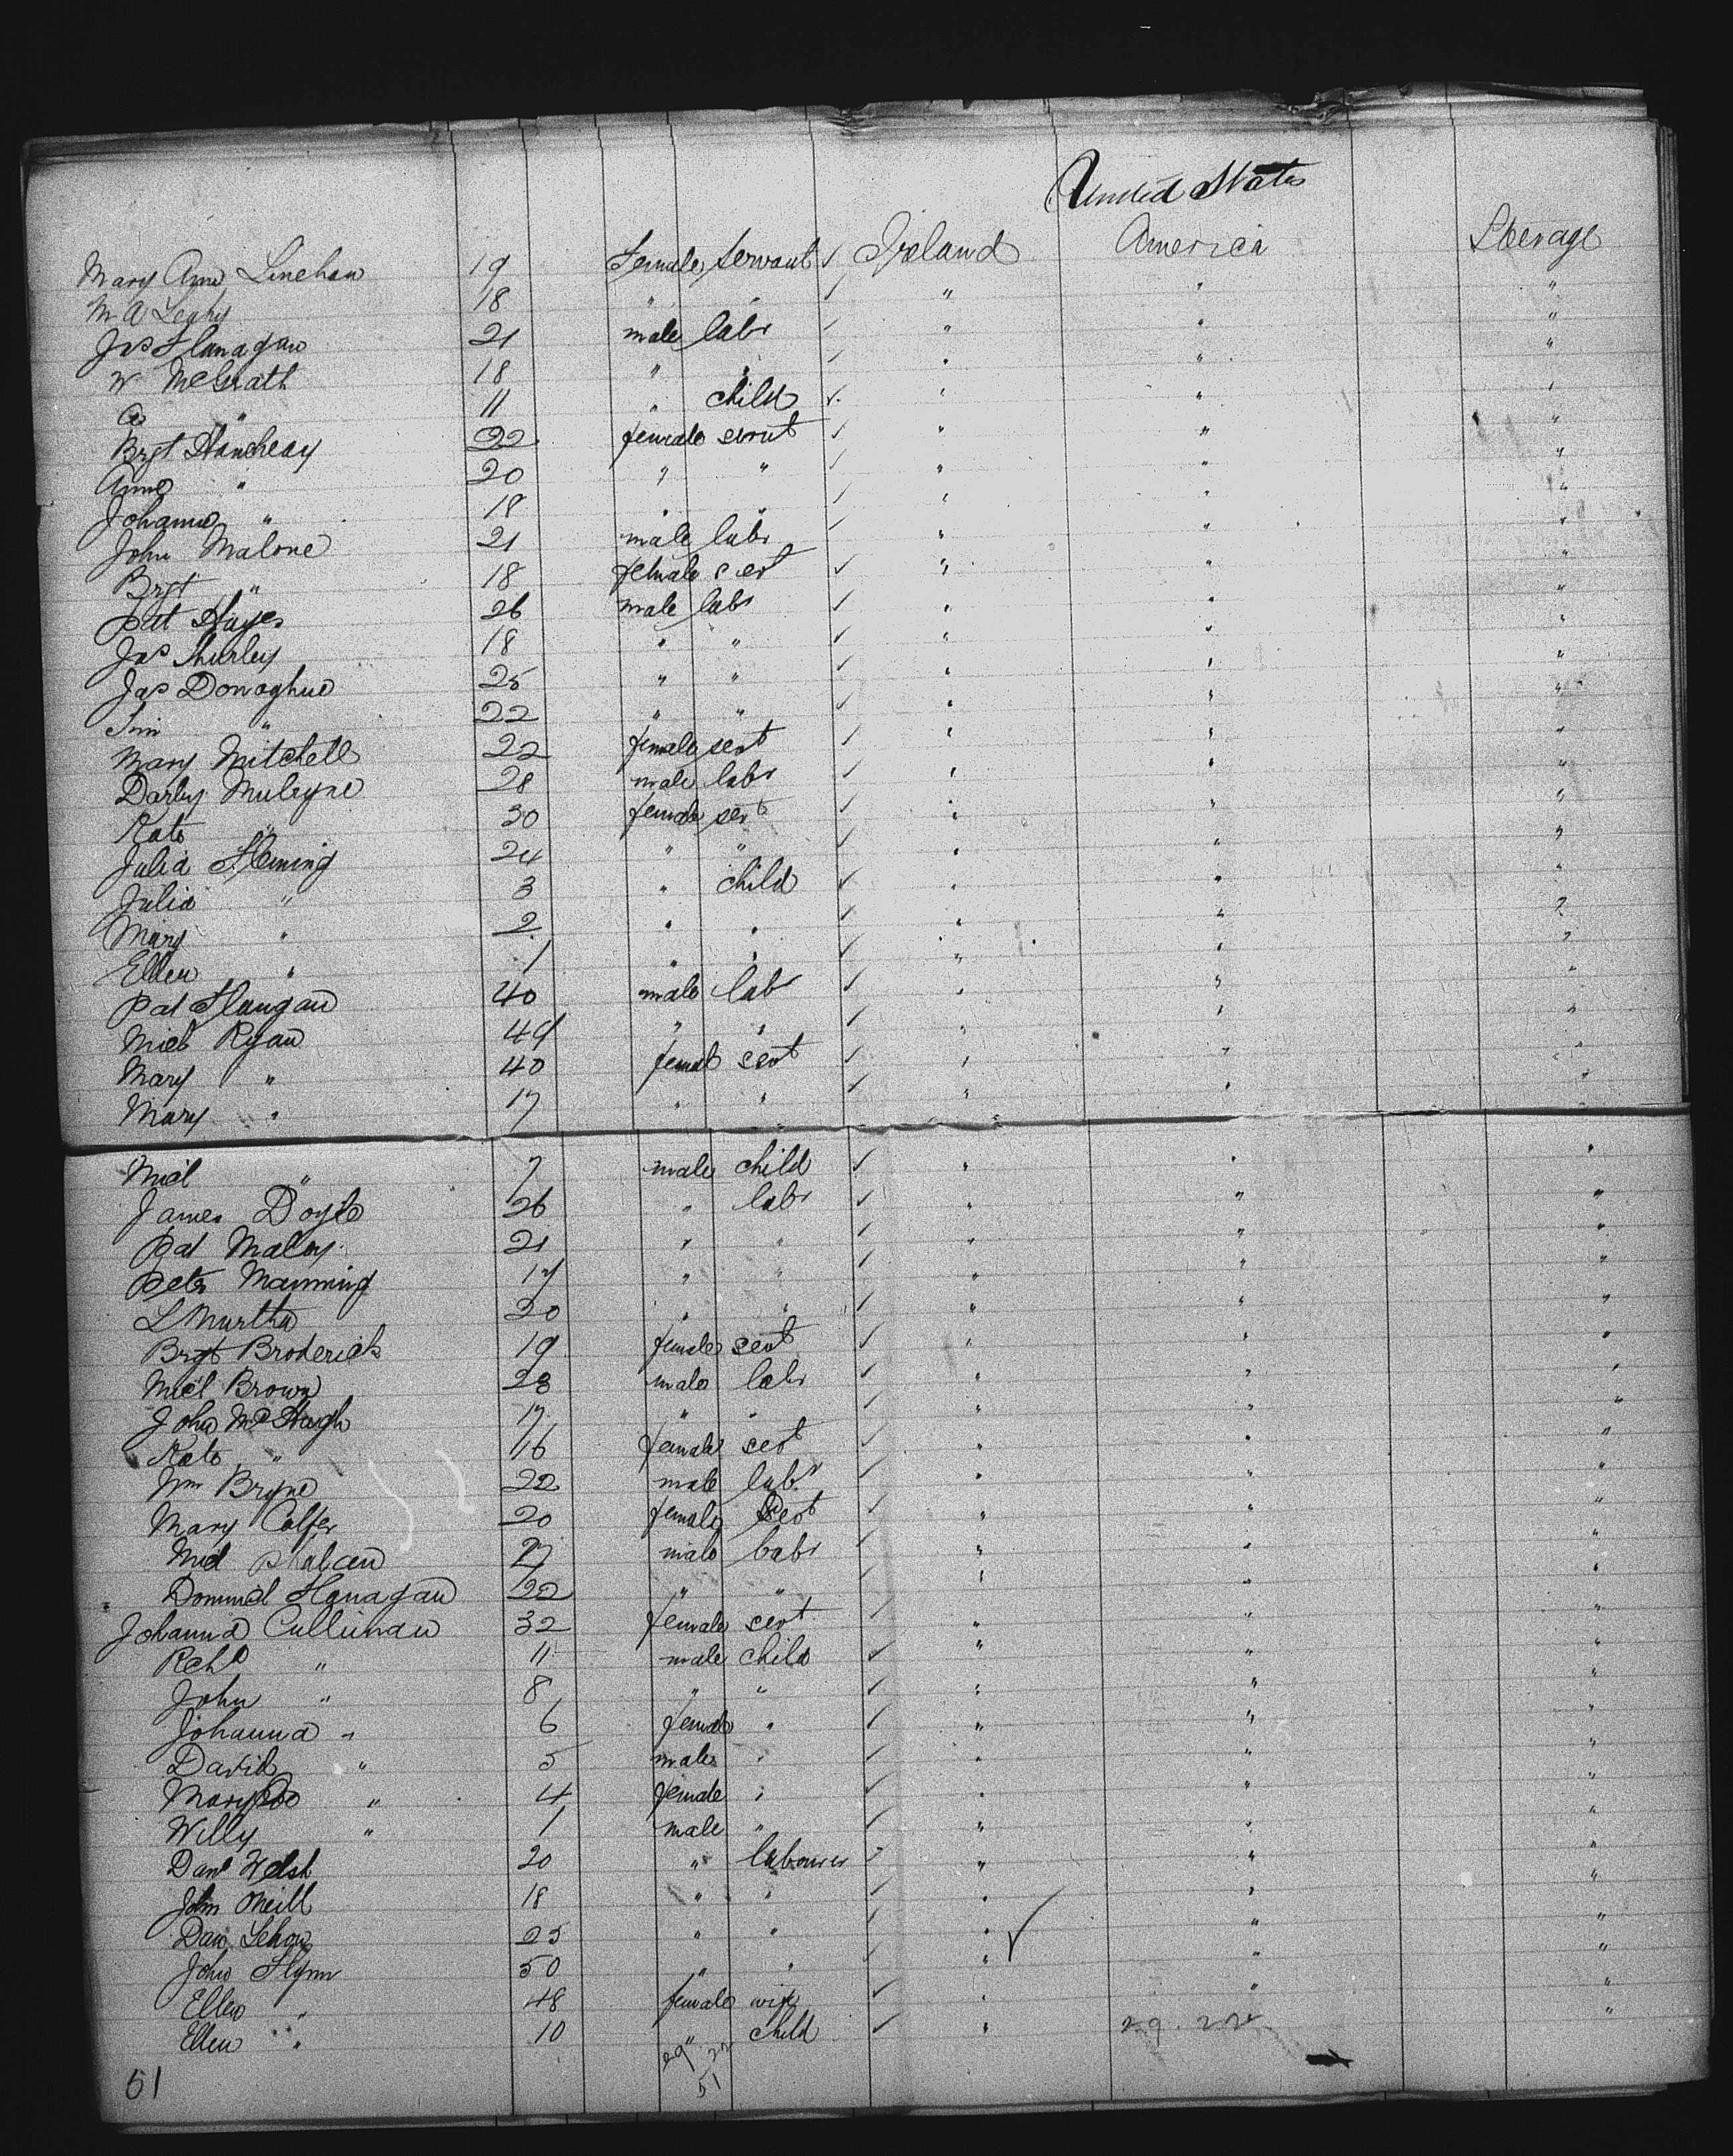 United States
Mary Ann Linehan 19 Female Servant ✓ Ireland America Steerage
M A Leahy 18 " " ✓ " " "
Jas Flanagan 21 male labr ✓ " " "
W McGrath 18 " " ✓ " " "
" 11 " child ✓ " " "
Brgt 22 female servt ✓ " " "
Anne " 20 " " ✓ " " "
Johanna " 18 " " ✓ " " "
John Malone 21 male labr ✓ " " "
Brgt " 18 female sert ✓ " " "
Pat Hayes 26 male labr ✓ " " "
Jas Hurley 18 " " ✓ " " "
Jas Donoghue 25 " " ✓ " " "
Tim " 22 " " ✓ " " "
Mary Mitchell 22 female sert ✓ " " "
Darby 28 male labr ✓ " " "
Kate " 30 female sert ✓ " " "
Julia Fleming 24 " " ✓ " " "
Julia " 3 " child ✓ " " "
Mary " 2 " " ✓ " " "
Ellen " 1 " " ✓ " " "
Pat 40 male labr ✓ " " "
Micl Ryan 49 " " ✓ " " "
Mary " 40 femal sert ✓ " " "
Mary " 17 " " ✓ " " "
Micl " 7 male child ✓ " " "
James Doyle 26 " labr ✓ " " "
Pat Maloy 21 " " ✓ " " "
Peter Manning 17 " " ✓ " " "
L Murtha 20 " " ✓ " " "
Brgt Broderick 19 female sert ✓ " " "
Micl Brown 28 male labr ✓ " " "
John McHugh 17 " " ✓ " " "
Kate " 16 female sert ✓ " " "
Wm Bryne 22 male labr ✓ " " "
Mary Colfer 20 female sert ✓ " " "
Micl Phalean 27 male labr ✓ " " "
Flanagan 22 " " ✓ " " "
Johanna Cullinan 32 female sert ✓ " " "
Rchd " 11 male child ✓ " " "
John " 8 " " ✓ " " "
Johanna " 6 female " ✓ " " "
David " 5 male " ✓ " " "
Mary " 4 female " ✓ " " "
Willy " 1 male " ✓ " " "
Danl Welsh 20 " labourer ✓ " " "
John Oneill 18 " " ✓ " " "
Dan 25 " " ✓ " ✓ " "
John Flynn 50 " " ✓ " " "
Ellen " 48 female wife ✓ " " "
Ellen " 10 " child ✓ " 29. 22 "
29 22
51 51